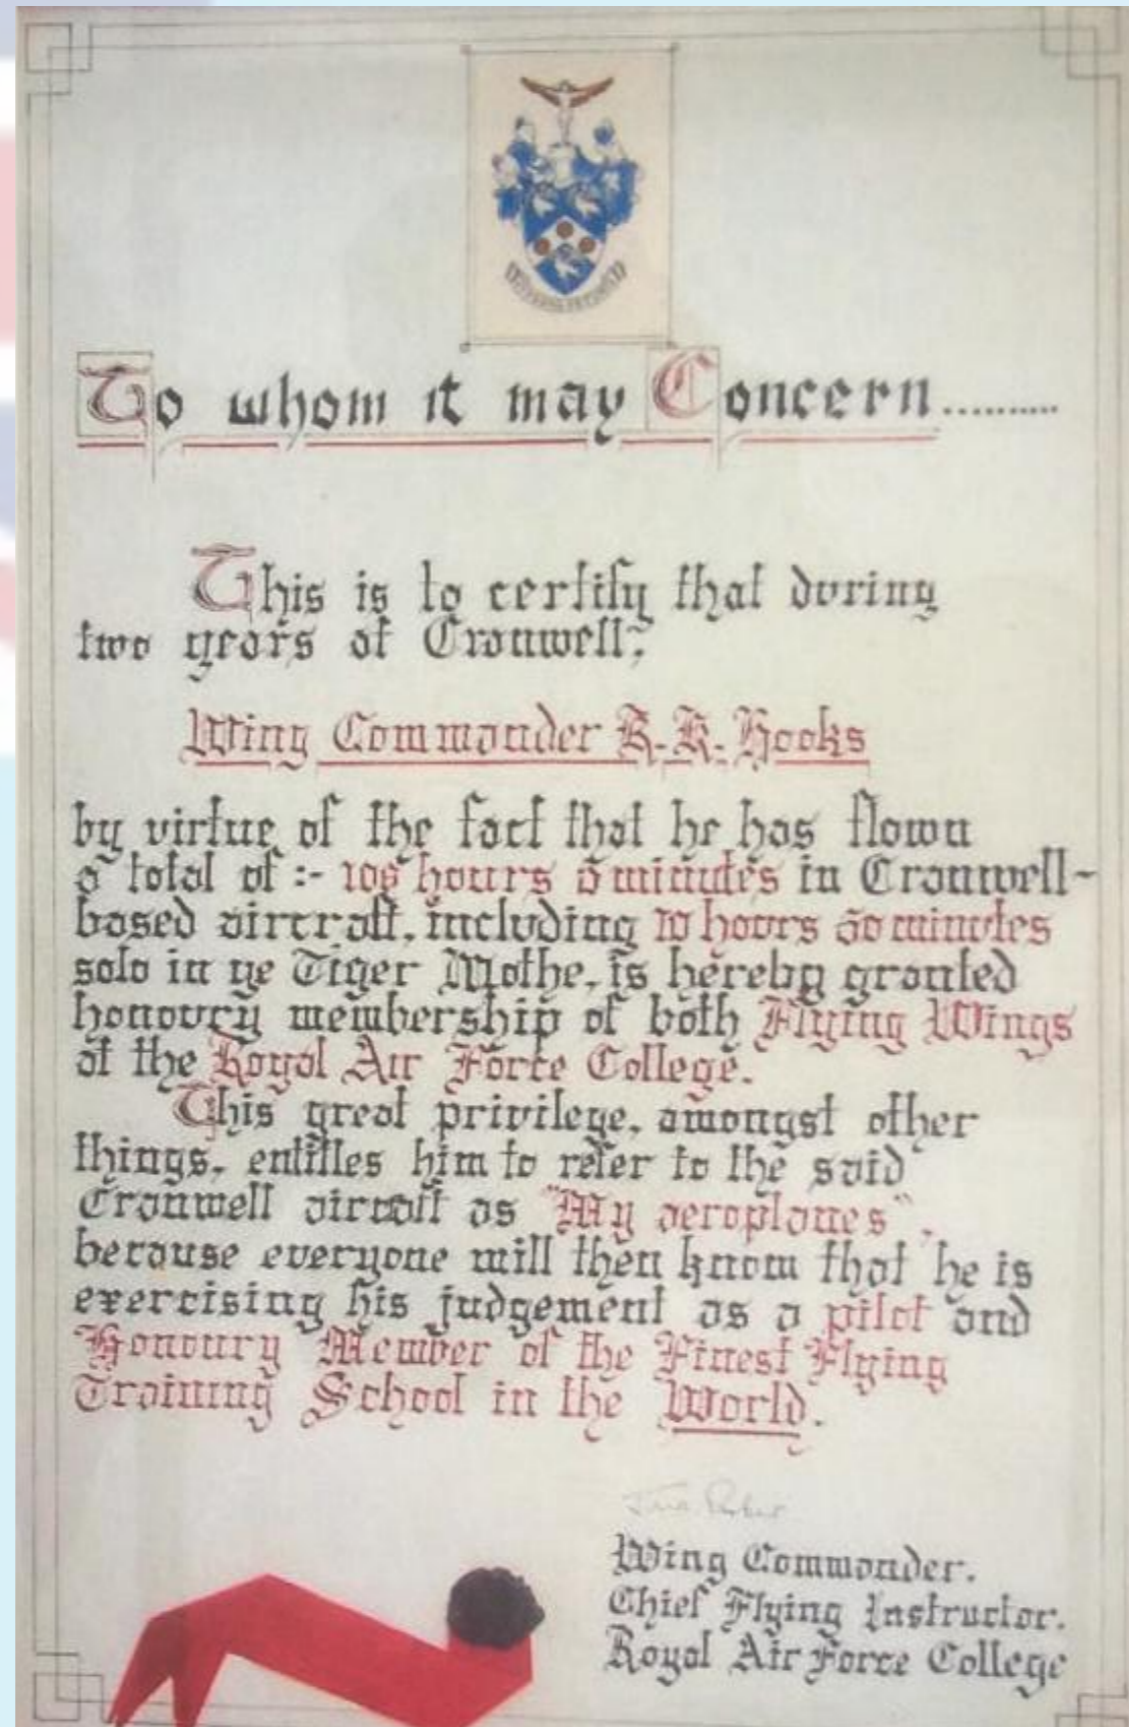 To whom it may Concern..........
This is to certify that during
two years at Cranwell,
Wing Commander R.K. Hooks
by virtue of the fact that he has flown
a total of :- 106 hours 5 minutes in Cranwell-
based aircraft, including 10 hours 50 minutes
solo in ye Tiger Mothe, is hereby granted
honoury membership of both Flying Wings
at the Royal Air Force College.
This great privilege, amongst other
things, entitles him to refer to the said
Cranwell aircraft as "My aeroplanes",
because everyone will then know that he is
exercising his judgement as a pilot and
Honoury Member of the Finest Flying
Training School in the World.
Wing Commander.
Chief Flying Instructor.
Royal Air Force College